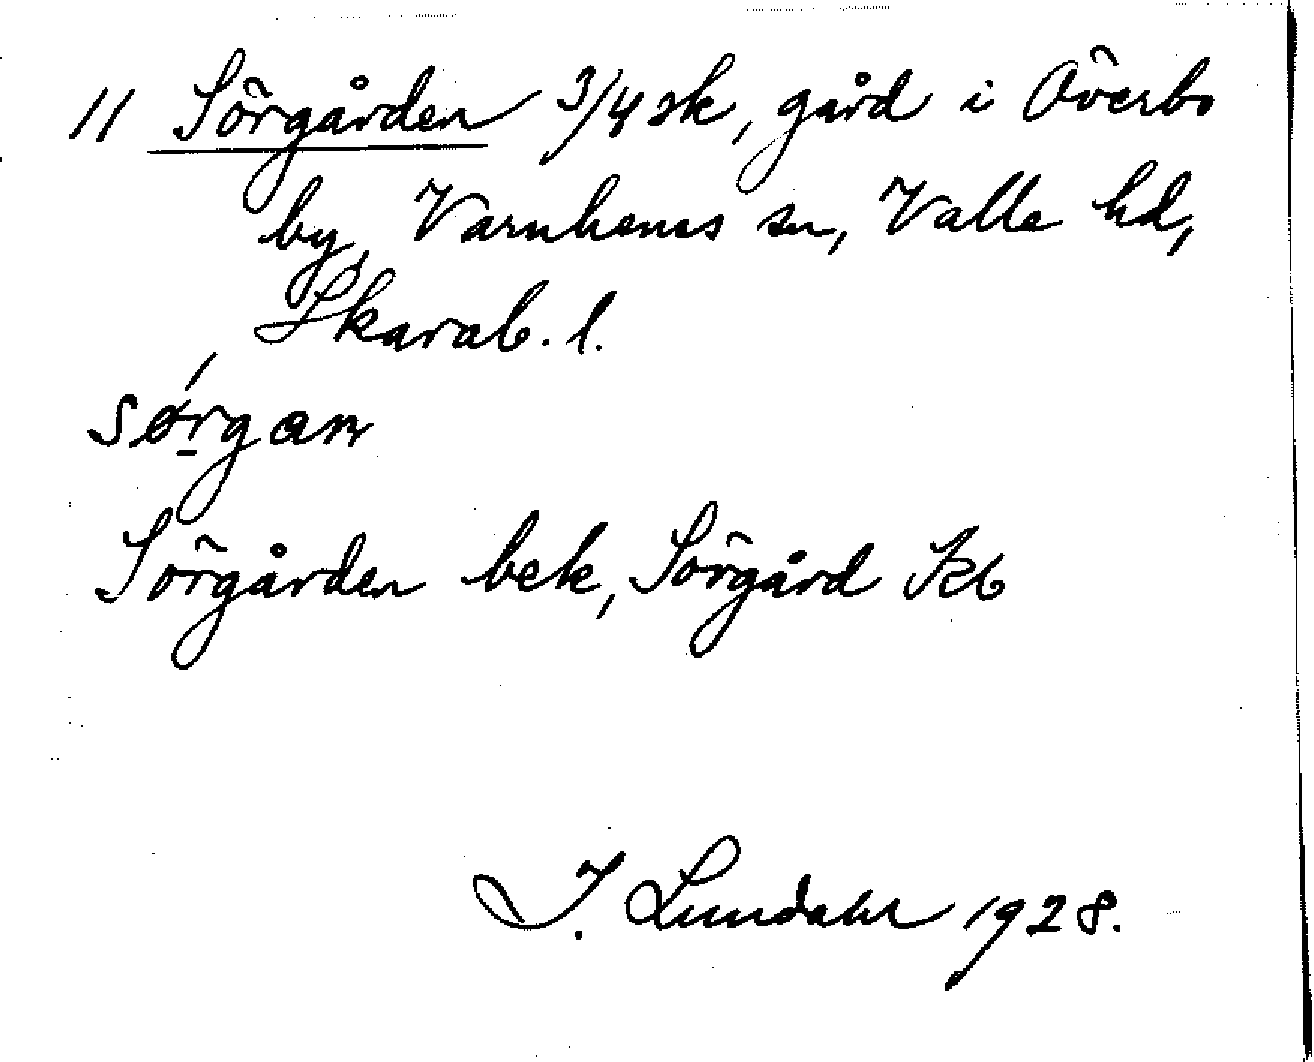 11 Sörgården 3/4 sk, gård i Överbo
by, Varnhems sn, Valle hd,
Skarab. l.
sørgan
Sörgården bek, Sörgård Kb
I. Lundahl 1928.